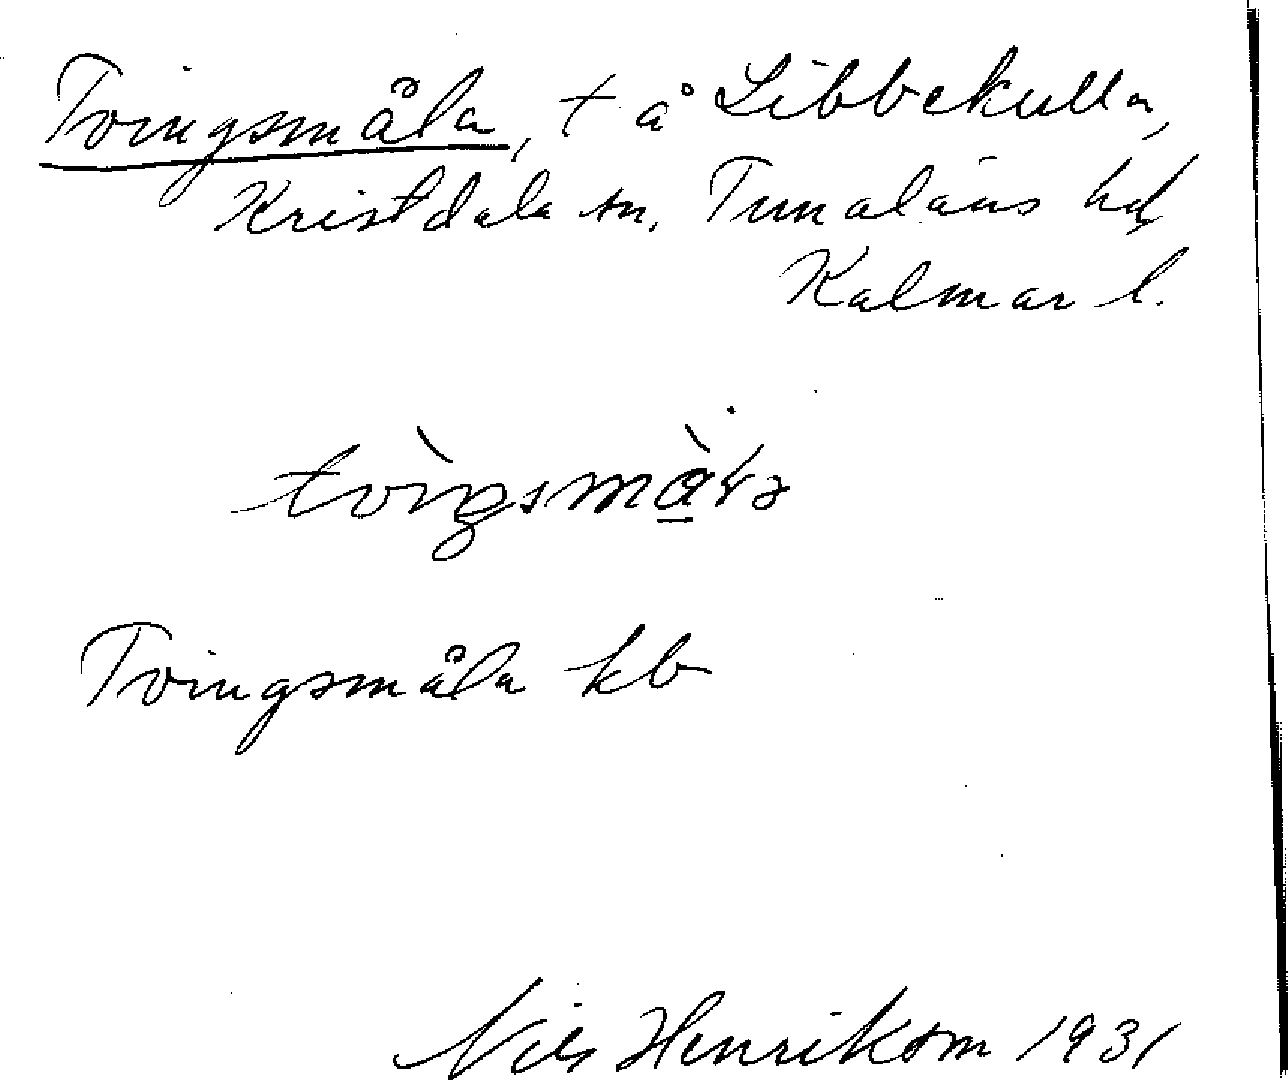 Tvingsmåla, t å Libbekulla,
Kristdala sn, Tunaläns hd,
Kalmar l.
Tvingsmåla kb
Nils Henrikson 1931